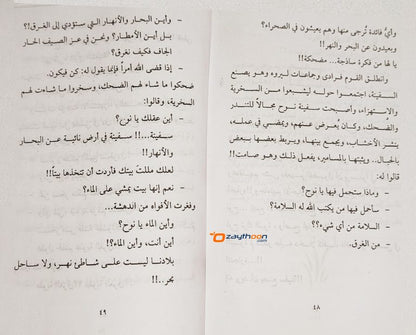 وأيُّ فائدة تُرجى منها وهم يعيشون في الصحراء؟
وبعيدون عن البحر والنهر!!
يا لها من فكرة ساذجة... مضحكة!!
وانطلق القوم فرادى وجماعات ليروه وهو يصنع
السفينة، اجتمعوا حوله ليشبعوا من السخرية
والاستهزاء، وأصبحت سفينة نوح مجالاً للتندر
والضحك، وكان يُعرض عنهم، ويمضي في عمله،
ينشر الأخشاب، ويجمع بينها، ويربط بعضها ببعض
بالحبال.. ويثبتها بالمسامير، يفعل ذلك وهو صامت!!
قالوا له:
- وماذا ستحمل فيها يا نوح؟
- سأحمل فيها من يكتب الله له السلامة؟
- السلامة من أي شيء؟؟
- من الغرق.
٤٨
- وأين البحار والأنهار التي ستؤدي إلى الغرق؟!
بل أين الأمطار؟ ونحن في عز الصيف الحار
الجاف فكيف نغرق؟
- إذا قضى الله أمراً فإنما يقول له: كن فيكون.
ضحكوا ما شاء لهم الضحك، وسخروا ما شاءت لهم
السخرية، وقالوا:
- أين عقلك يا نوح؟
سفينة...!! سفينة في أرض نائية عن البحار
والأنهار!!
لعلك مللت بيتك فأردت أن تتخذها بيتاً!!
- نعم إنها بيت يمشي على الماء؟
وفغرت الأفواه من الدهشة..
- وأين الماء يا نوح؟
أين أنت، وأين الماء؟!
بلادنا ليست على شاطئ نهر، ولا ساحل
بحر..!!
٤٩
Ozaythoon
.com